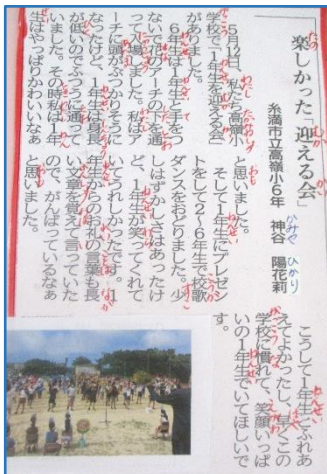 楽しかった「迎える会」
糸満市立高嶺小6年 神谷 陽花莉
かみや ひかり
5月12日、私たち高嶺小
学校で「1年生を迎える会」
がありました。
6年生は1年生と手をつ
ないで花のアーチの下を通
って入場しました。私はア
ーチに頭がぶつかりそうに
なったけど、1年生は身長
が低いのでふつうに通って
いました。その時私は1年
生はやっぱりかわいいなぁ
と思いました。
そして1年生にプレゼン
トをして2〜6年生で校歌
ダンスをおどりました。少
しはずかしさはあったけ
ど、1年生が笑ってくれて
いてうれしかったです。1
年生からのお礼の言葉も長
い文章を覚えて言っていた
ので、がんばっているなぁ
と思いました。
こうして1年生とふれあ
えてよかったし、早くこの
学校に慣れて、笑顔いっぱ
いの1年生でいてほしいで
す。